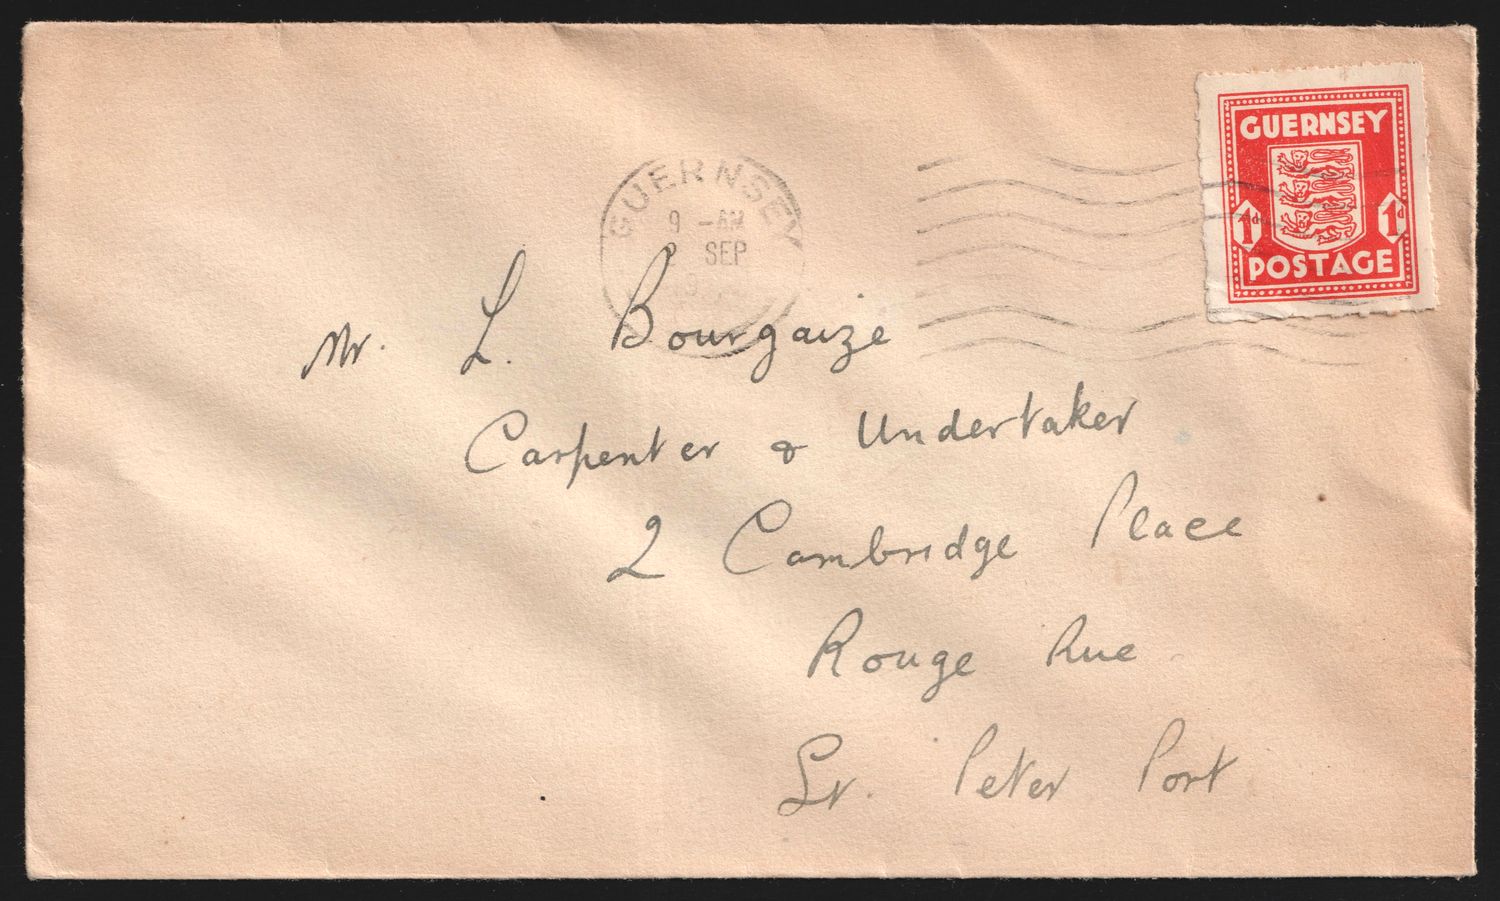 GUERNSEY
1d 1d
POSTAGE
GUERNSEY
9 -AM
SEP
Mr. L. Bourgaize
Carpenter & Undertaker
2 Cambridge Place
Rouge Rue
St. Peter Port